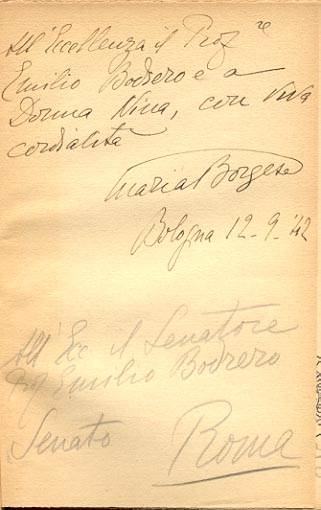 All'Eccellenza il Prof.re
Emilio Bodrero e a
Donna Nina, con viva
cordialità
Maria Borgese
Bologna 12-9-'42
All'Ecc il Senatore
Prof Emilio Bodrero
Senato Roma